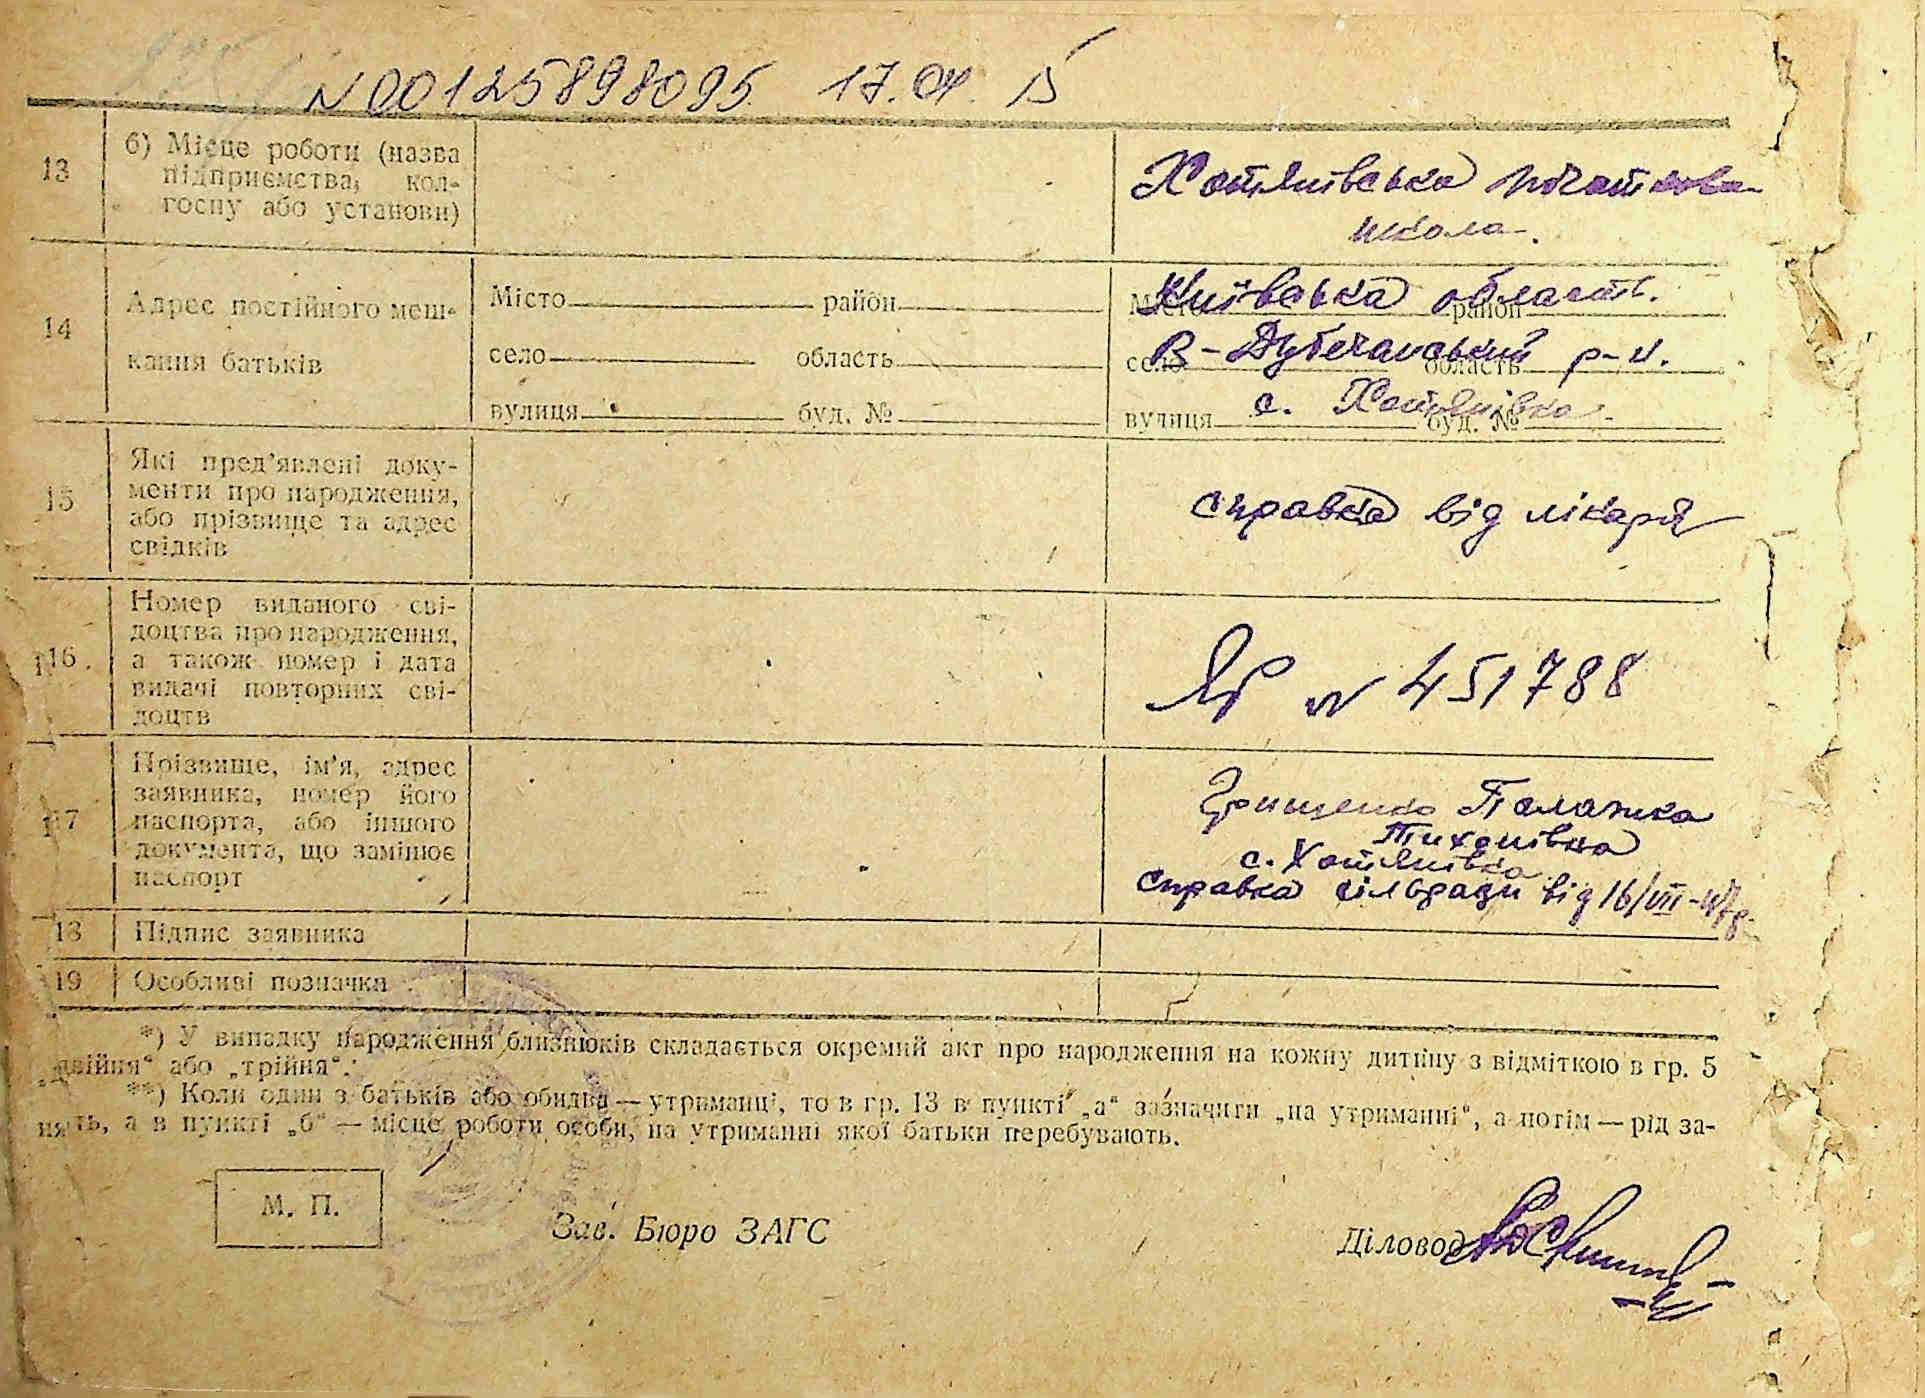 N 00125898095. 17.04. 15
13
б) Місце роботи (назва
підприємства, кол-
госпу або установи)
Хотянівська початкова
школа.
14
Адрес постійного меш-
кання батьків
Місто район
село область
вулиця буд. №
Місто район
Київська область.
село область
В-Дубечанський р-н.
вулиця буд. №
с. Хотянівка.
15
Які пред'явлені доку-
менти про народження,
або прізвище та адрес
свідків
справка від лікаря
16
Номер виданого сві-
доцтва про народження,
а також номер і дата
видачі повторних сві-
доцтв
ЯР N 451788
17
Прізвище, ім'я, адрес
заявника, номер його
паспорта, або іншого
документа, що замінює
паспорт
Грищенко Палажка
Тихонівна
с. Хотянівка
справка сільради від 16/VII-47р.
18 Підпис заявника
19 Особливі позначка
*) У випадку народження близнюків складається окремий акт про народження на кожну дитину з відміткою в гр. 5
„двійня“ або „трійня“.
**) Коли один з батьків або обидва — утриманці, то в гр. 13 в пункті „а“ зазначити „на утриманні“, а потім — рід за-
нять, а в пункті „б“ — місце роботи особи, на утриманні якої батьки перебувають.
М. П.
Зав. Бюро ЗАГС
Діловод